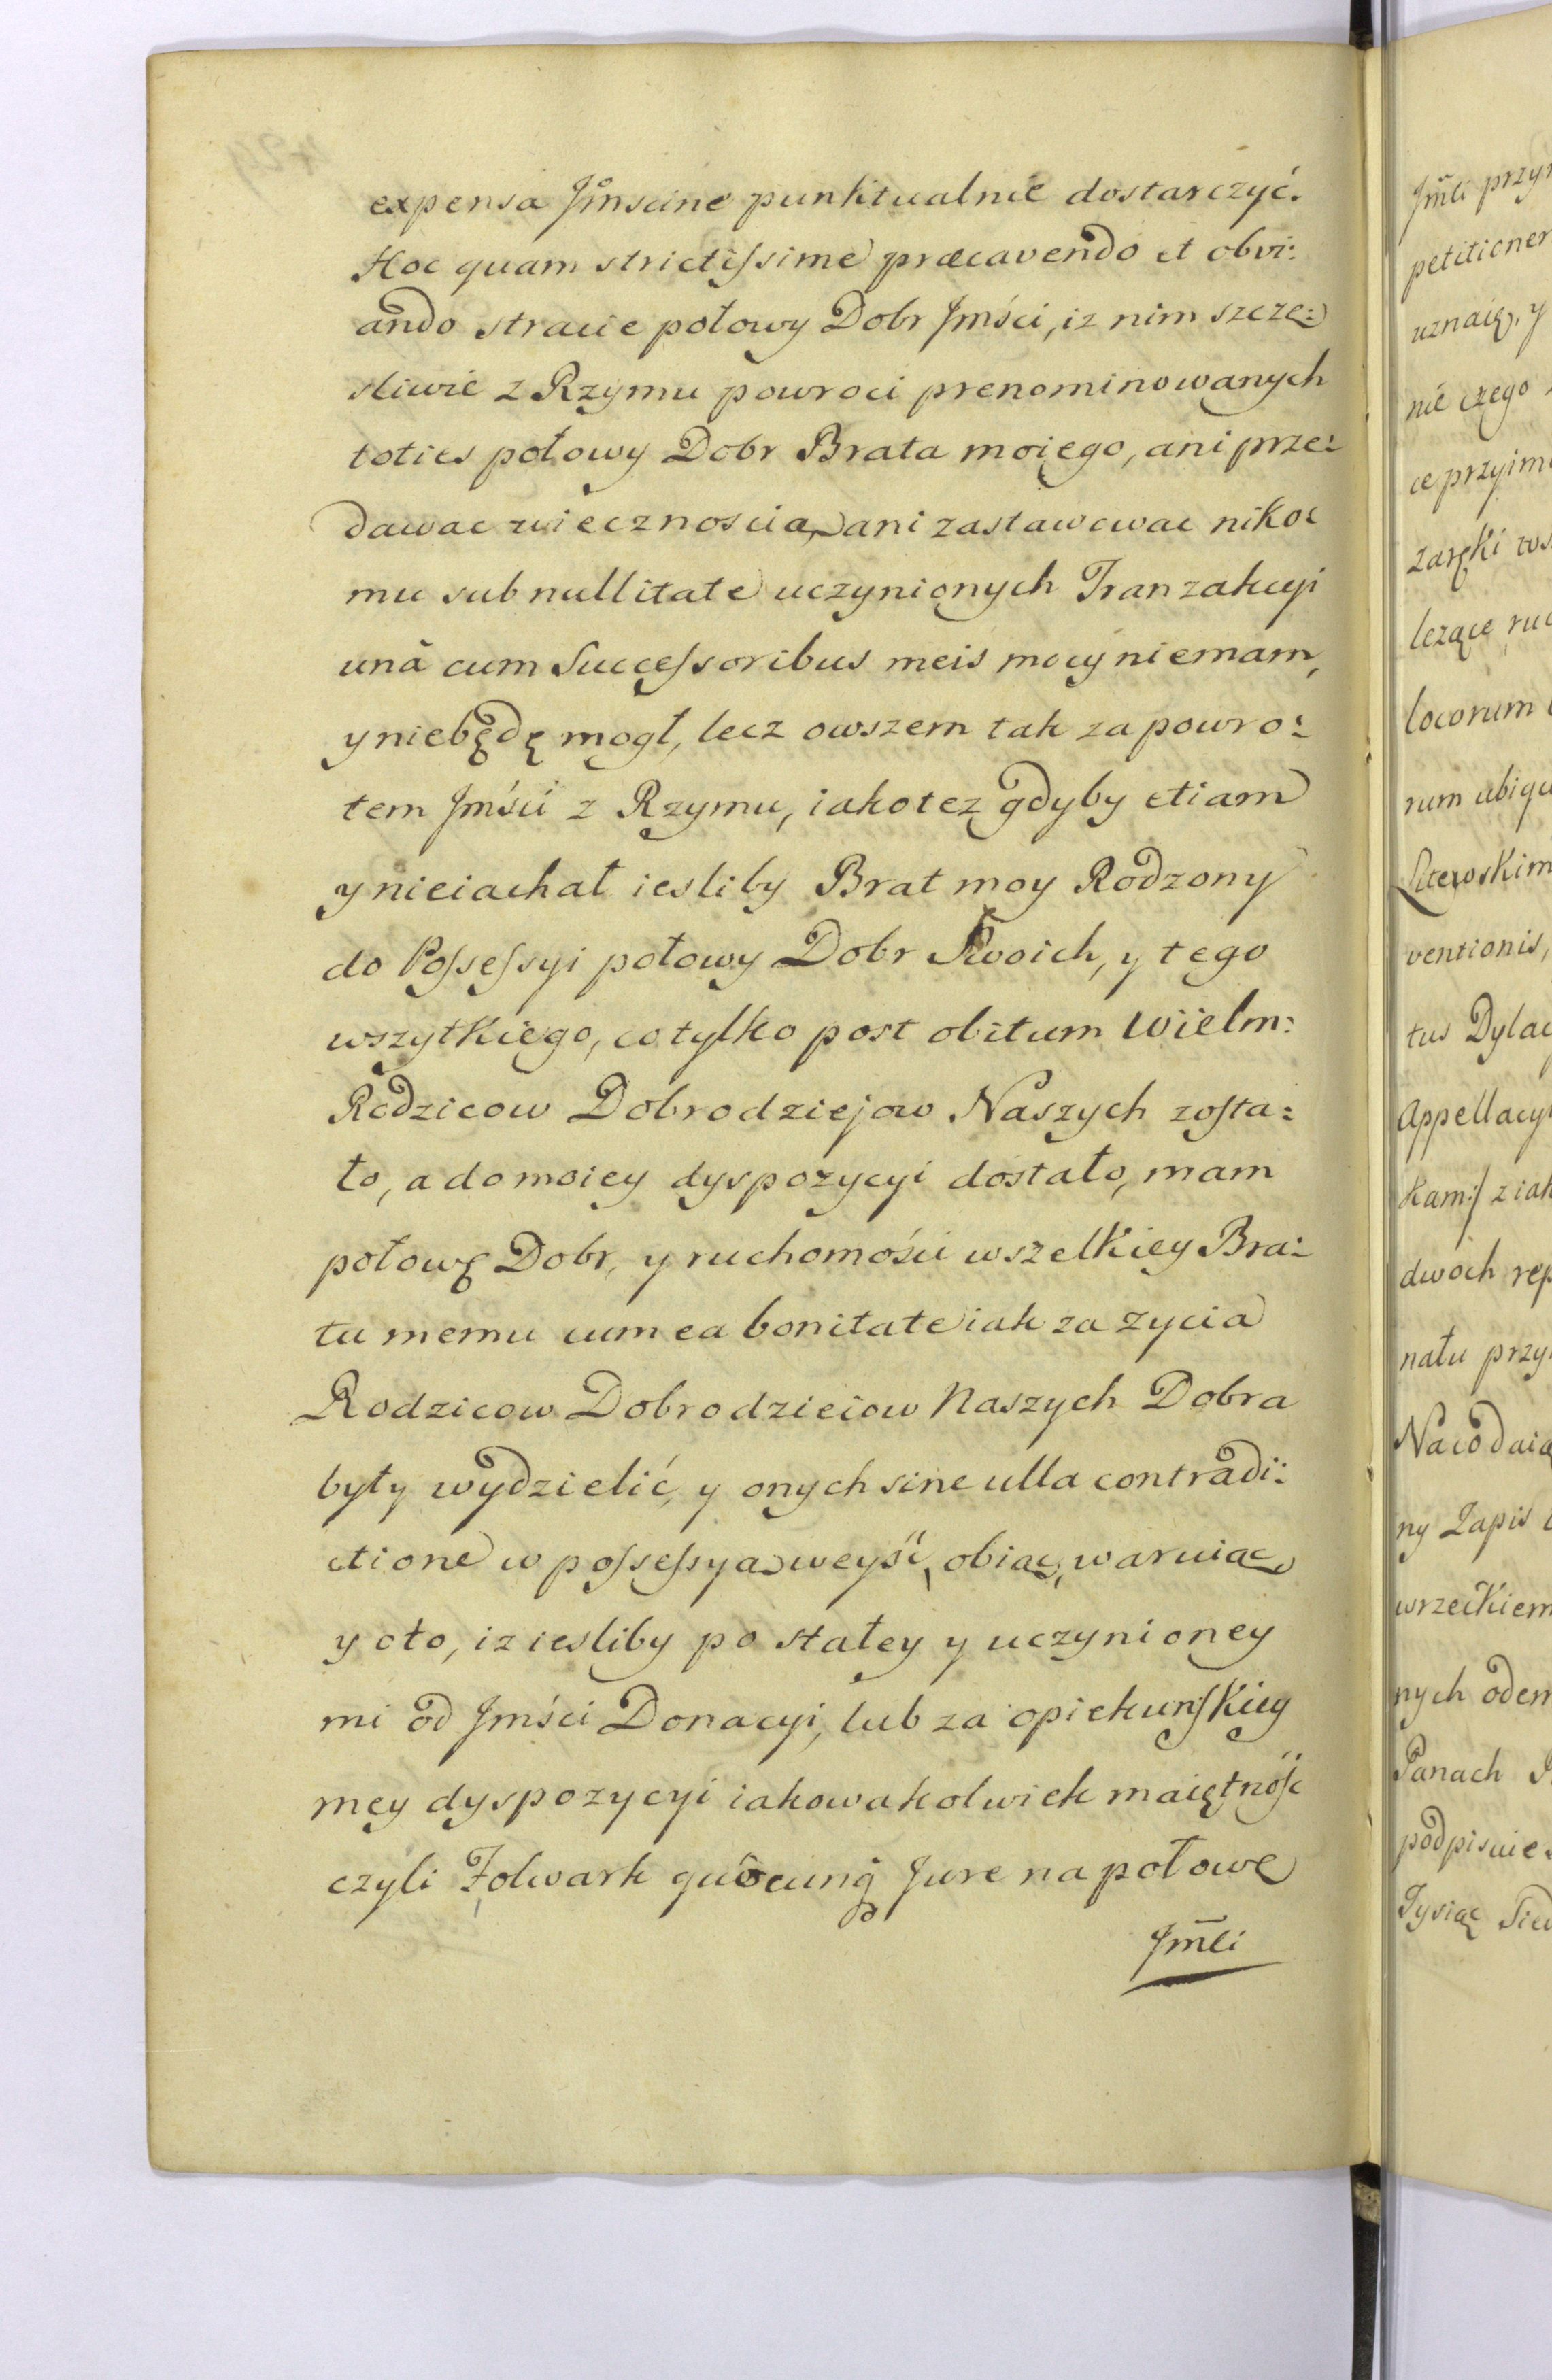 expensa Jmscine punktualnie dostarczyć.
Hoc quam strictiſsime præcavendo et obvi:
ando stracie połowy Dobr Jmści, iz nim szczę:
sliwie z Rzymu powroci prenominowanych
toties połowy Dobr Brata moiego, ani prze:
dawac wiecznoscią, ani zastawowac niko:
mu sub nullitate uczynionych Tranzakcyi
unâ cum Succeſsoribus meis mocy niemam,
y niebędę mogł, lecz owszem tak za powro:
tem Jmści z Rzymu, iakotez gdyby etiam
y nieiachał iesliby Brat moy Rodzony
do Poſseſsyi połowy Dobr Swoich, y tego
wszytkiego, co tylko post obitum Wielm:
Rodzicow Dobrodziejow Naszych zoſta:
ło, a do moiey dyspozycyi dostało, mam
połowę Dobr, y ruchomości wszelkiey Bra:
tu memu cum ea bonitate iak za zycia
Rodzicow Dobrodzieiow Naszych Dobra
były wydzielić, y onych sine ulla contradi:
ctione w poſseſsyą weyść, obiąc, waruiąc,
y oto, iz iesliby po stałey y uczynioney
mi od Jmści Donacyi, lub za opiekunſkiey
mey dyspozycyi iakowakolwiek maiętnoſć
czyli Folwark quôcunq̃ Jure na połowę
Jm̃ci
Jm̃ci przy
petitioner
uznaię, y
nie czego
ce przyim
Zaręki ws
lezące ruc
locorum
rum ubiqu
Litewskim
ventionis,
tus Dylac
Appellacy
kami ziak
dwóch rep
nału przy
Na co daię
ny Zapis
wrzeckiem
nych odem
Panach
podpisuie
Tysiąc Sied